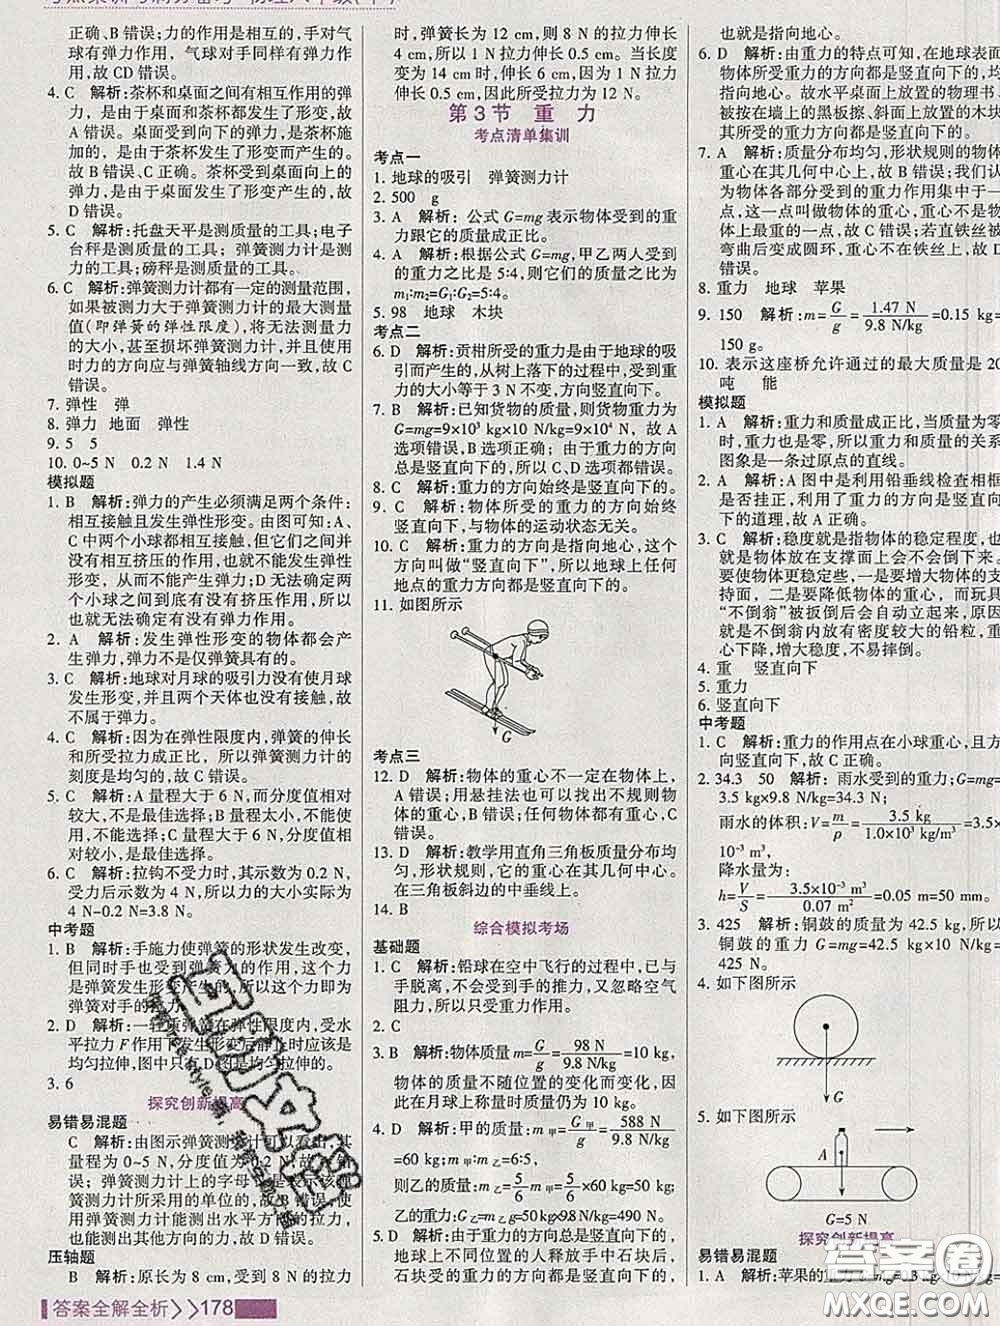 正确,B 错误;力的作用是相互的,手对气
球有弹力作用,气球对手同样有弹力作
用,故 CD 错误。
4. C 解析:茶杯和桌面之间有相互作用的弹
力,是由于茶杯和桌面都发生了形变,故
A 错误。桌面受到的弹力,是茶杯施
加的,是由于茶杯发生了形变而产生的。
故 B 错误、C 正确。茶杯受到桌面向上的
弹力,是由于桌面发生了形变产生的,故
D 错误。
5. C 解析:托盘天平是测质量的工具;电子
台秤是测质量的工具;弹簧测力计是测
力的工具;磅秤是测质量的工具。
6. C 解析:弹簧测力计都有一定的测量范围,
如果被测力大于弹簧测力计的最大测量
值(即弹簧的弹性限度),将无法测量力
的大小,甚至损坏弹簧测力计,并且使用
时力的方向应与弹簧轴线方向一致,故 C
错误。
7. 弹性 弹
8. 弹力 地面 弹性
9. 5 5
10. 0~5 N 0.2 N 1.4 N
模拟题
1. B 解析:弹力的产生必须满足两个条件:
相互接触且发生弹性形变。由图可知:A、
C 中两个小球都相互接触,但它们之间没
有相互挤压的作用,也就不能发生弹性
形变,从而不能产生弹力;D 无法确定两
个小球之间有没有挤压作用,所以也就
无法确定有没有弹力作用。
2. A 解析:发生弹性形变的物体都会产
生弹力,弹力不是仅弹簧具有的。
3. A 解析:地球对月球的吸引力没有使月球
发生形变,并且两个天体也没有接触,故
不属于弹力。
4. C 解析:因为在弹性限度内,弹簧的伸长
和所受拉力成正比,所以弹簧测力计的
刻度是均匀的,故 C 错误。
5. C 解析:A 量程大于 6 N,而分度值相对
较大,不是最佳选择;B 量程太小,不能使
用,不能选择;C 量程大于 6 N,分度值相
对较小,是最佳选择。
6. C 解析:拉钩不受力时,其示数为 0.2 N,
受力后示数为 4 N,所以力的大小实际为
4 N-0.2 N=3.8 N。
中考题
1. B 解析:手施力使弹簧的形状发生改变,
但同时手也受到弹簧的作用力,这个力
是弹簧发生弹性形变产生的,所以这个力即为
弹簧对手的弹力。
2. D 解析:一轻质弹簧在弹性限度内,受水
平拉力 F 作用下发生形变后时应该是
均匀拉伸,图中只有 D 图是均匀拉伸的。
3. 6
探究创新提高
易错易混题
C 解析:由图示弹簧测力计可以看出,其
量程为 0~5 N,分度值为0.2 N,故 A 错
误;弹簧测力计上的字母
簧测力计所采用的单位的,故 B 错误;
使用弹簧测力计能测出水平方向的拉力,
也能测出其他方向的力,故 D 错误。
压轴题
B 解析:原长为 8 cm,受到 8 N 的拉力
答案全解全析 178
时,弹簧长为 12 cm,则 8 N 的拉力伸长
4 cm,所以 1 N 拉伸长 0.5 cm。当长度
变为 14 cm 时,伸长 6 cm,因为 1 N 拉力
伸长 0.5 cm,因此所受拉力为 12 N。
第 3 节 重 力
考点清单集训
考点一
1. 地球的吸引 弹簧测力计
2. 500 g
3. A 解析:公式 G=mg 表示物体受到的重
力跟它的质量成正比。
4. A 解析:根据公式 G=mg,甲乙两人受到
的重力之比是 5:4,则它们的质量之比为
m₁:m₂=G₁:G₂=5:4。
5. 98 地球 木块
考点二
6. D 解析:贡柑所受的重力是由于地球的吸
引而产生的,从树上落下的过程中,受到
重力的大小等于 3 N 不变,方向竖直向下。
7. B 解析:已知货物的质量,则货物重力为
G=mg=9×10³ kg×10 N/kg=9×10⁴ N,故 A
选项错误,B 选项正确;由于重力的方向
总是竖直向下的,所以 C、D 选项都错误。
8. C 解析:重力的方向始终是竖直向下的。
9. C 解析:物体所受的重力的方向始终
竖直向下,与物体的运动状态无关。
10. C 解析:重力的方向是指向地心,这个
方向叫做“竖直向下”,所以地球上任何
地点的重力方向都是竖直向下的。
11. 如图所示
G
考点三
12. D 解析:物体的重心不一定在物体上,
A 错误;用悬挂法也可以找出不规则物
体的重心,B 错误;任何物体都有重心,C
错误。
13. D 解析:教学用直角三角板质量分布均
匀,形状规则,它的重心在其几何中心。
在三角板斜边的中垂线上。
14. B
综合模拟考场
基础题
1. C 解析:铅球在空中飞行的过程中,已与
手脱离,不再受到手的推力,又忽略空气
阻力,所以只受重力作用。
2. C
3. B 解析:物体质量 m=G/g=98 N/9.8 N/kg=10 kg,
物体的质量不随位置的变化而变化,因
此在月球上称量时质量仍为 10 kg。
4. D 解析:甲的质量 m甲=G甲/g=588 N/9.8 N/kg
=60 kg,m甲:m乙=6:5,
则乙的质量 m乙=5/6 m甲=5/6×60 kg=50 kg,
乙的重力:G乙=m乙g=50kg×9.8 N/kg=490 N。
5. D 解析:由于重力的方向总是竖直向下的,
地球上不同位置的人释放手中石块后,
石块受到的重力的方向都是竖直向下的,
也是指向地心。
6. D 解析:由重力的特点可知,在地球表面
物体所受重力的方向都是竖直向下的,
指向地心。故水平桌面上的物理书、
被按在墙上的黑板擦、斜坡上的大石块
其所受的重力方向都是竖直向下的。
7. A 解析:质量分布均匀,形状规则的物体
重心在其几何中心上,故 B 错误;我们认
为物体各部分受到的重力作用集中于一
点,这一点叫做物体的重心,重心不是物
体上最重的一点,故 C 错误;若直铁丝被
弯曲后变成圆环,重心不在铁丝上,故 D
错误。
8. 重力 地球 苹果
9. 150 解析:m=G/g=1.47 N/9.8 N/kg=0.15 kg
150 g。
10. 表示这座桥允许通过的最大质量是 20
吨 能
模拟题
1. A 解析:重力和质量成正比,当质量为
时,重力也是零,所以重力和质量的关系
图象是一条过原点的直线。
2. A 解析:A 图中是利用铅垂线检查相框
是否挂正,利用了重力的方向是竖直向
下的道理,故 A 正确。
3. C 解析:稳度就是指物体的稳定程度,也
就是物体放在支撑面上会不会倒下来。
要使物体更稳定些,一是要增大物体的支
持面,二是要降低物体的重心,而玩具
“不倒翁”被扳倒后会自动立起来,原因
就是不倒翁内放有密度较大的铅粒,重
心下降,增大稳度,不易摔倒。
4. 重 竖直向下
5. 重力
6. 竖直向下
中考题
1. C 解析:重力的作用点在小球重心,且方
向竖直向下,故 C 正确。
2. 34.3 50 解析:雨水受到的重力:G=mg=
3.5 kg×9.8 N/kg=34.3 N;
雨水的体积:V=m/ρ=3.5 kg/1.0×10³ kg/m³=3.5×
10⁻³ m³,
降水量为:
h=V/S=3.5×10⁻³ m³/0.07 m²=0.05 m=50 mm。
3. 425 解析:铜鼓的质量为 42.5 kg,所以
铜鼓的重力 G=mg=42.5 kg×10 N/kg=
425 N。
4. 如图所示
G
5. 如下图所示
A
G=5 N
探究创新提高
易错易混题
1. A 解析:苹果的重力
答案圈
MXQE.COM